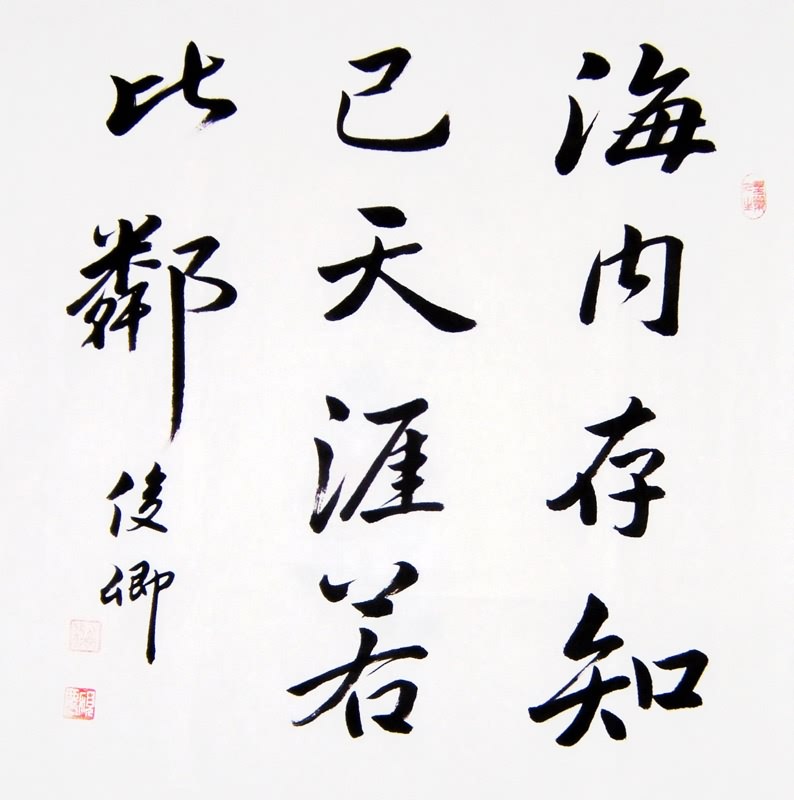 海内存知
已天涯若
比鄰俊卿